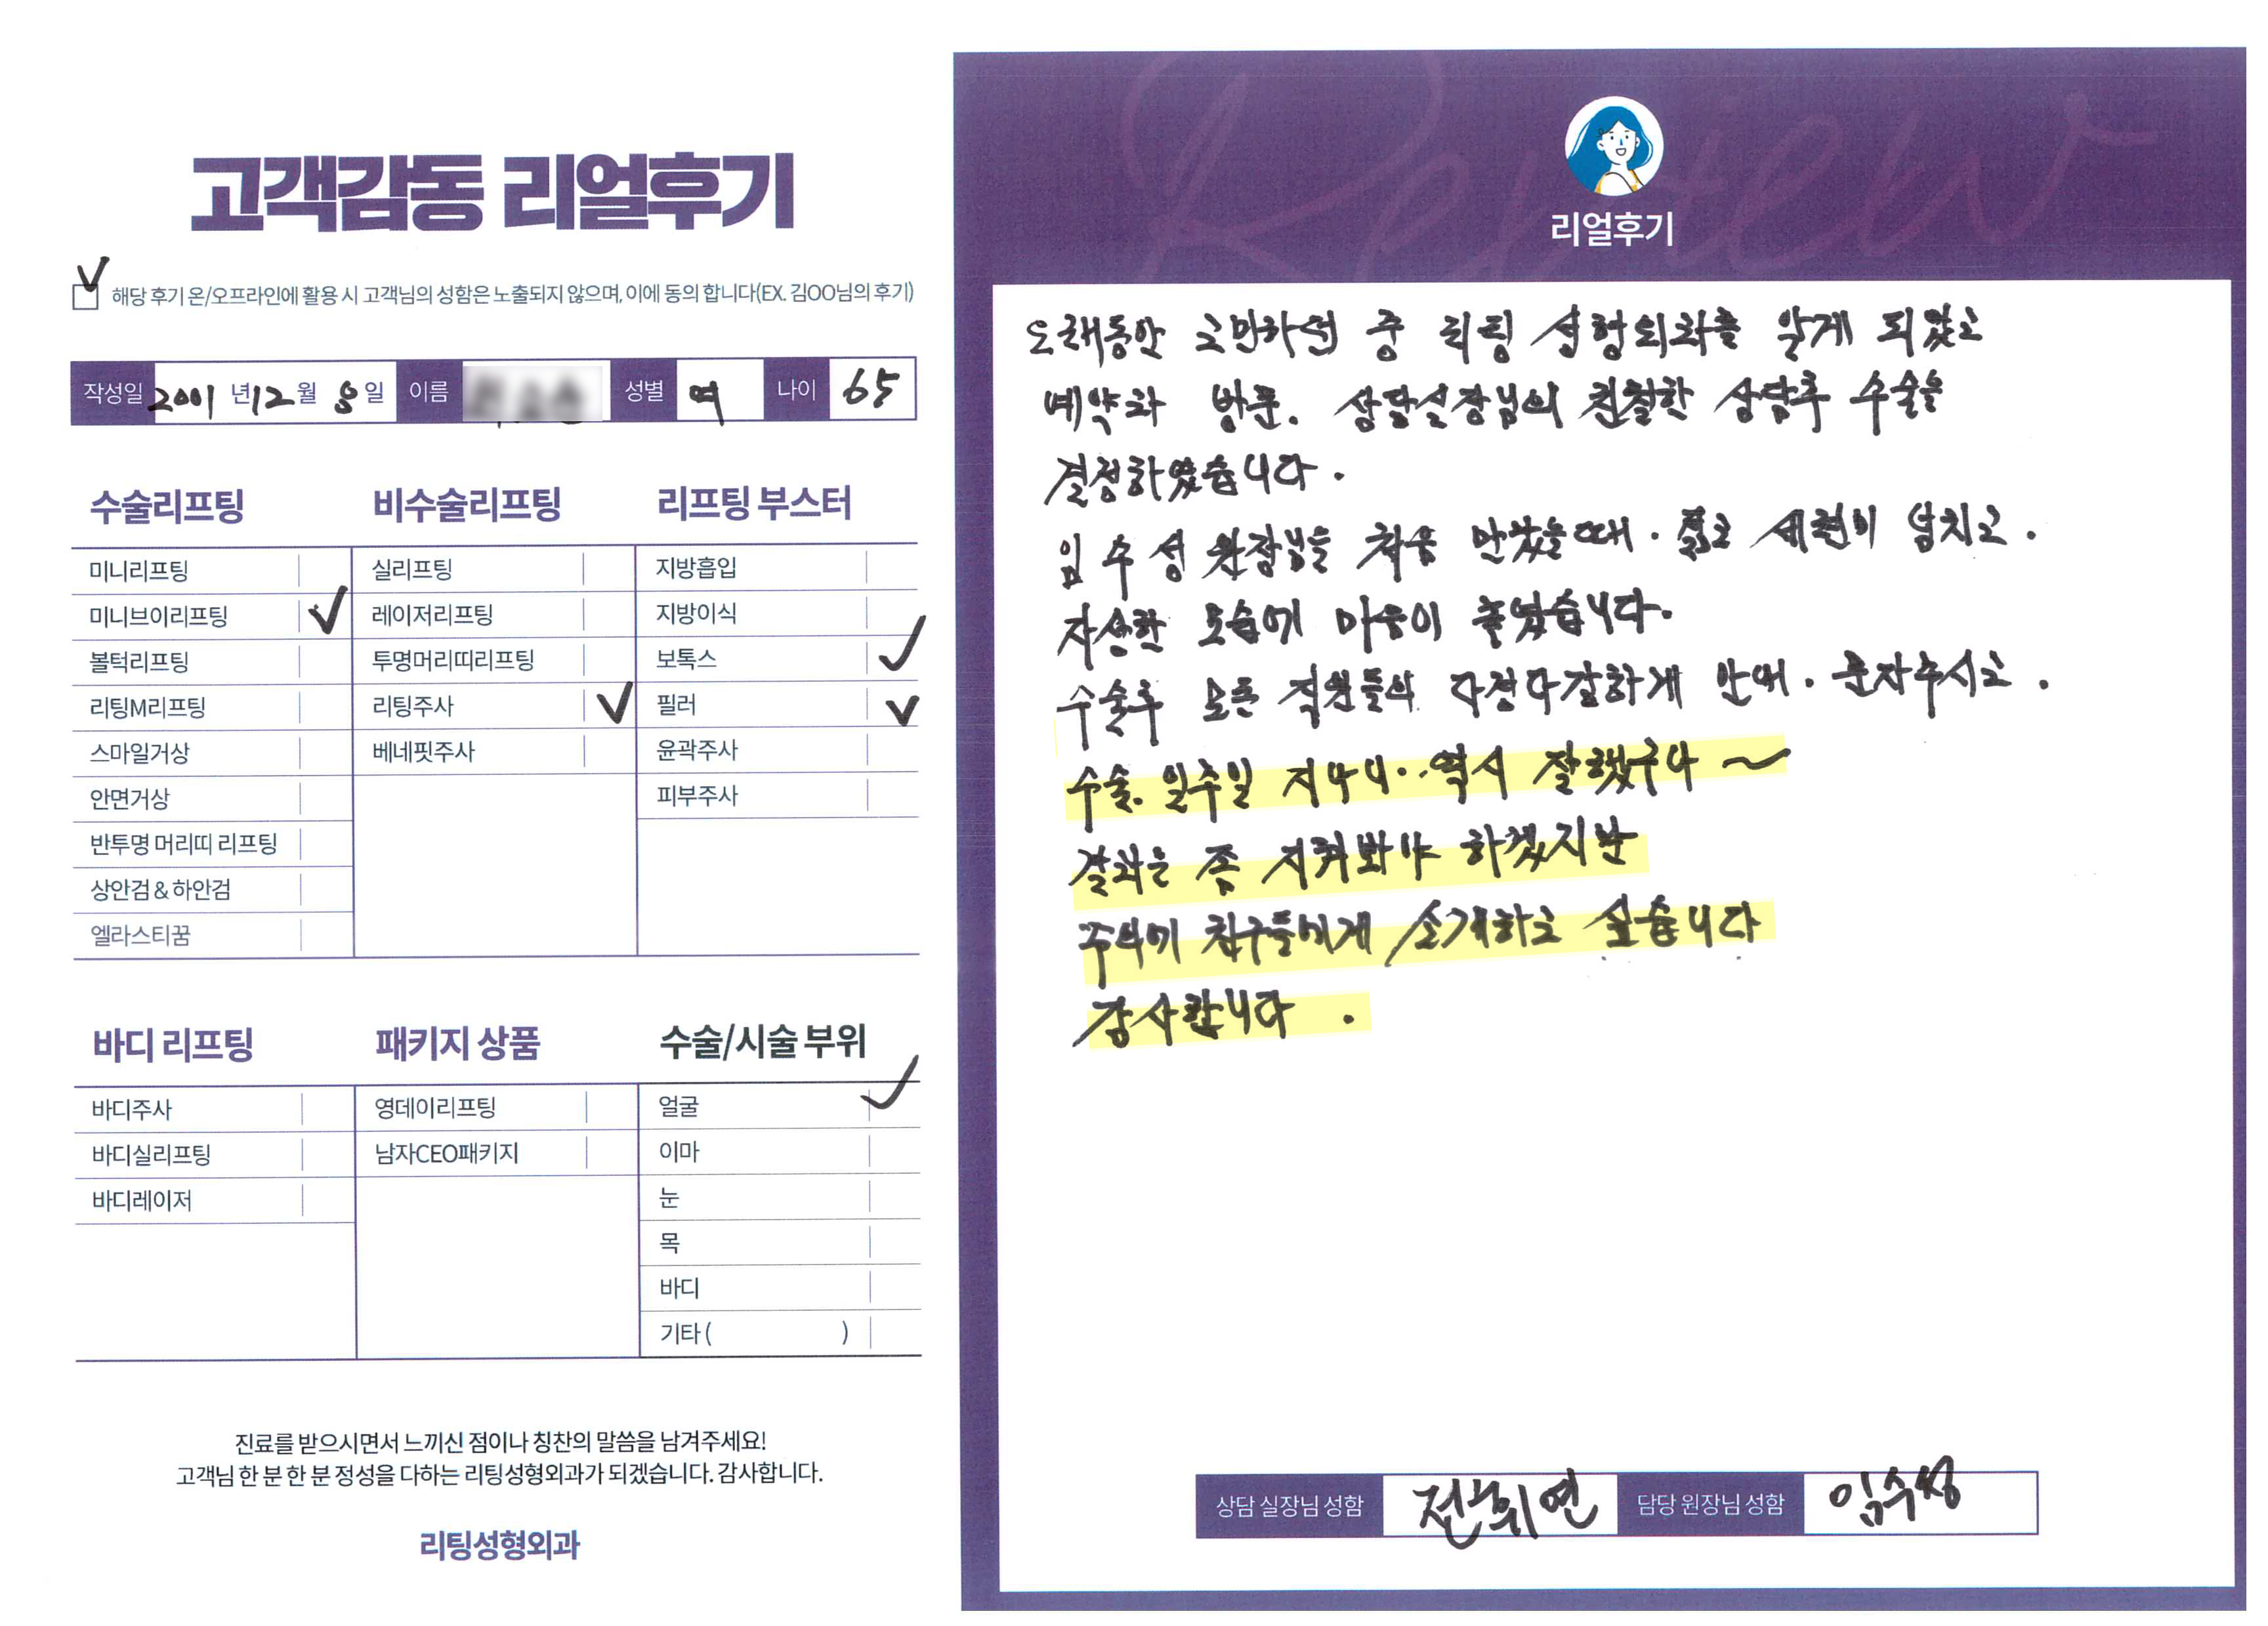 고객감동 리얼후기
해당 후기 온/오프라인에 활용 시 고객님의 성함은 노출되지 않으며, 이에 동의 합니다(EX. 김OO님의 후기)
작성일 2001 년 12 월 8 일 이름 성별 여 나이 65
수술리프팅
미니리프팅
미니브이리프팅
볼턱리프팅
리팅M리프팅
스마일거상
안면거상
반투명 머리띠 리프팅
상안검 & 하안검
엘라스티꿈
비수술리프팅
실리프팅
레이저리프팅
투명머리띠리프팅
리팅주사
베네핏주사
리프팅 부스터
지방흡입
지방이식
보톡스
필러
윤곽주사
피부주사
바디 리프팅
바디주사
바디실리프팅
바디레이저
패키지 상품
영데이리프팅
남자CEO패키지
수술/시술 부위
얼굴
이마
눈
목
바디
기타 ( )
진료를 받으시면서 느끼신 점이나 칭찬의 말씀을 남겨주세요!
고객님 한 분 한 분 정성을 다하는 리팅성형외과가 되겠습니다. 감사합니다.
리팅성형외과
Review
리얼후기
오래동안 고민하던 중 리팅 성형외과를 알게 되었고
예약과 방문. 상담실장님의 친절한 상담후 수술을
결정하였습니다.
임수성 원장님을 처음 만났을때. 젊고 세련미 넘치고.
자상한 모습에 마음이 놓였습니다.
수술후 모든 직원들의 다정다감하게 안내. 문자주시고.
수술. 일주일 지나니.. 역시 잘했구나 ~
결과는 좀 지켜봐야 하겠지만
주위에 친구들에게 소개하고 싶습니다
감사합니다.
상담 실장님 성함 전휘연 담당 원장님 성함 임수성